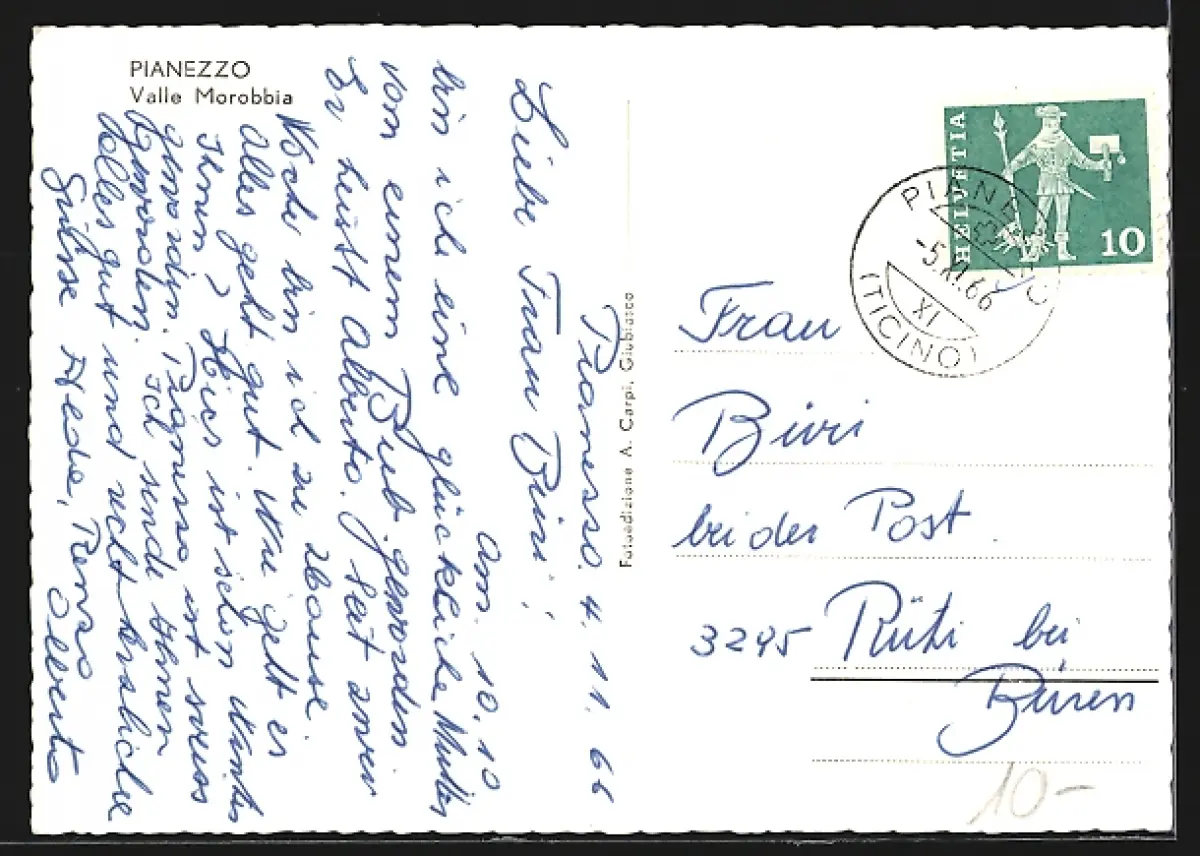 PIANEZZO
Valle Morobbia
Pianesso. 4. 11. 66
Liebe Frau Büri!
Am. 10.10
bin ich eine glückliche Mutter
von einem Bub geworden
Er heisst Alberto. Seit zwei
Woche bin ich zu zhause.
Alles geht gut. Wie gelt es
Ihnen? Hier ist schon Winter
geworden. ist
geworden. Ich sende Ihnen
Alles gut und recht herzliche
Grüsse Heda, Renso
Alberto
Fotoedizione A. Carpi, Giubiasco
HELVETIA
10
PIANEZZO
-5.XI.66
XI
(TICINO)
Frau
Büri
bei der Post
3295 Rüti bei
Büren
10-